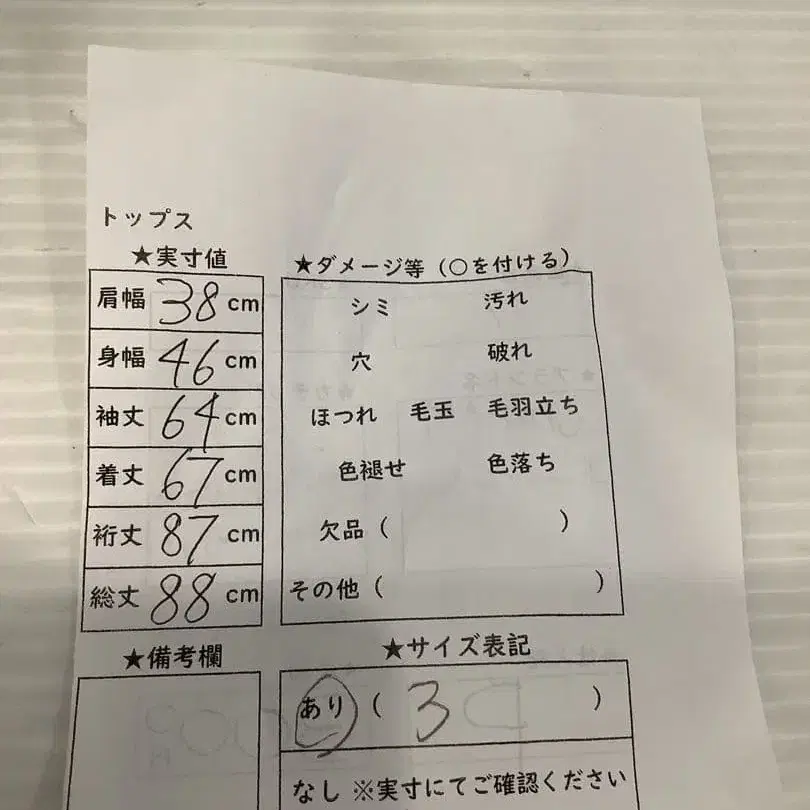 トップス
★実寸値
肩幅 38 cm
身幅 46 cm
袖丈 64 cm
着丈 67 cm
裄丈 87 cm
総丈 88 cm
★備考欄
★ダメージ等（○を付ける）
シミ 汚れ
穴 破れ
ほつれ 毛玉 毛羽立ち
色褪せ 色落ち
欠品（ ）
その他（ ）
★サイズ表記
あり（ 3 ）
なし ※実寸にてご確認ください